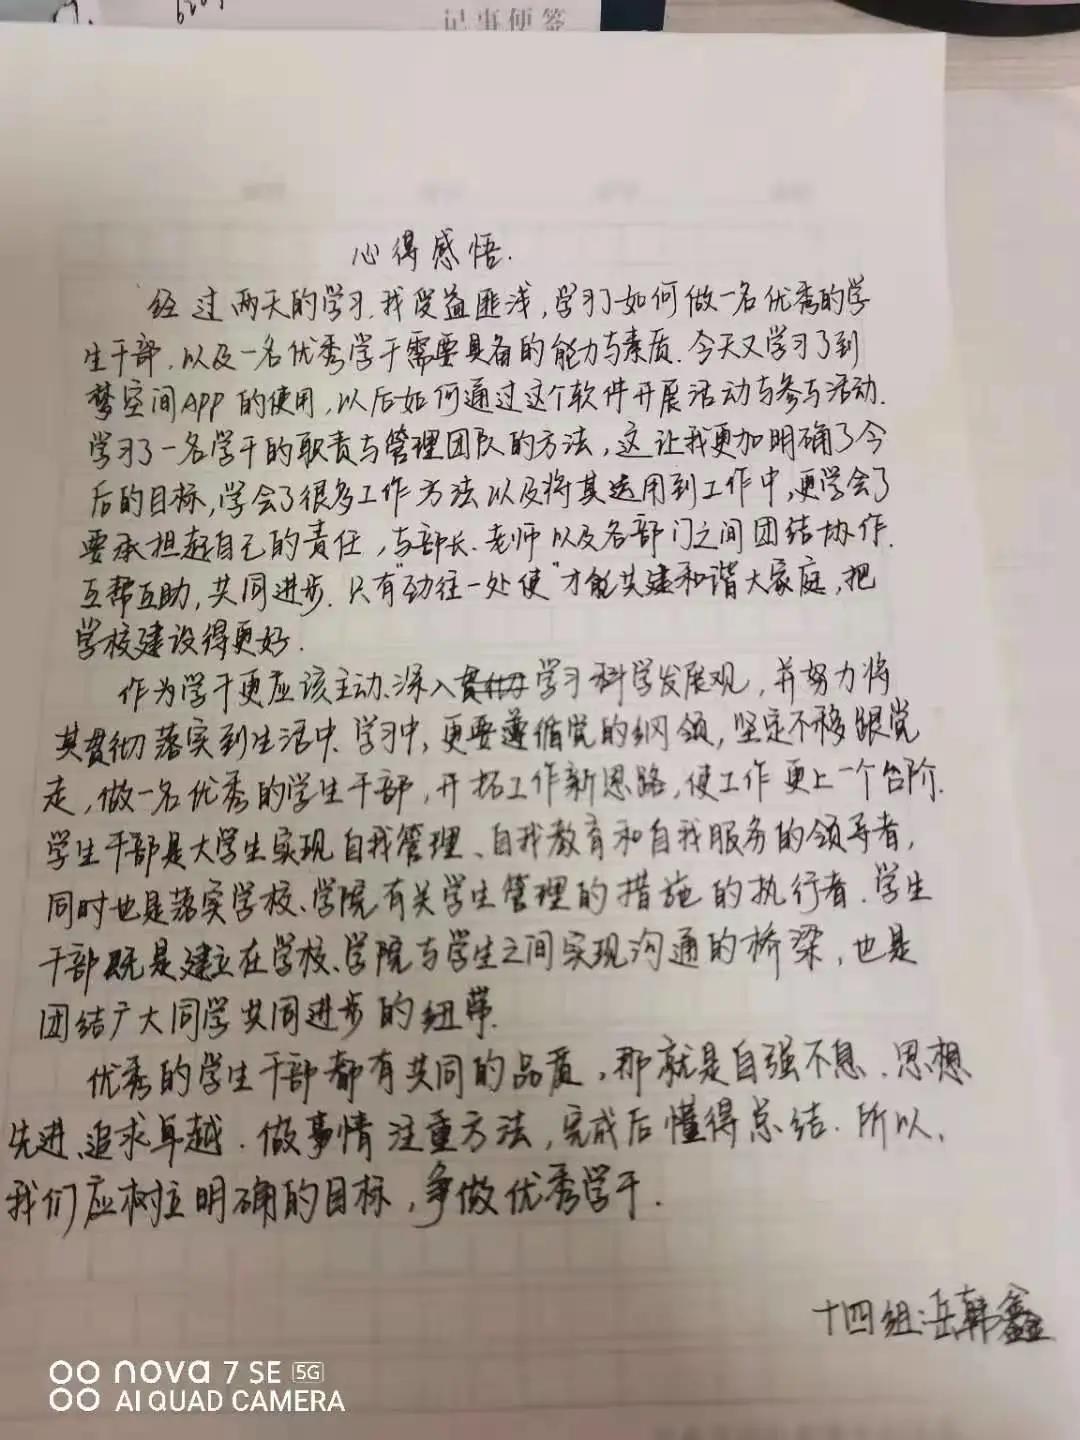 记事便签
心得感悟.
经过两天的学习,我受益匪浅,学习了如何做一名优秀的学
生干部,以及一名优秀学干需要具备的能力与素质.今天又学习了到
梦空间APP的使用,以后如何通过这个软件开展活动与参与活动.
学习了一名学干的职责与管理团队的方法,这让我更加明确了今
后的目标,学会了很多工作方法以及将其运用到工作中,更学会了
要承担起自己的责任,与部长、老师以及各部门之间团结协作.
互帮互助,共同进步.只有"劲往一处使"才能共建和谐大家庭,把
学校建设得更好.
作为学干更应该主动、深入贯彻学习科学发展观,并努力将
其贯彻落实到生活中、学习中,更要遵循党的纲领,坚定不移跟党
走,做一名优秀的学生干部,开拓工作新思路,使工作更上一个台阶.
学生干部是大学生实现自我管理、自我教育和自我服务的领导者,
同时也是落实学校、学院有关学生管理的措施的执行者.学生
干部既是建立在学校、学院与学生之间实现沟通的桥梁,也是
团结广大同学共同进步的纽带.
优秀的学生干部都有共同的品质,那就是自强不息、思想
先进、追求卓越.做事情注重方法,完成后懂得总结.所以,
我们应树立明确的目标,争做优秀学干.
十四组:岳韩鑫
nova 7 SE 5G
AI QUAD CAMERA